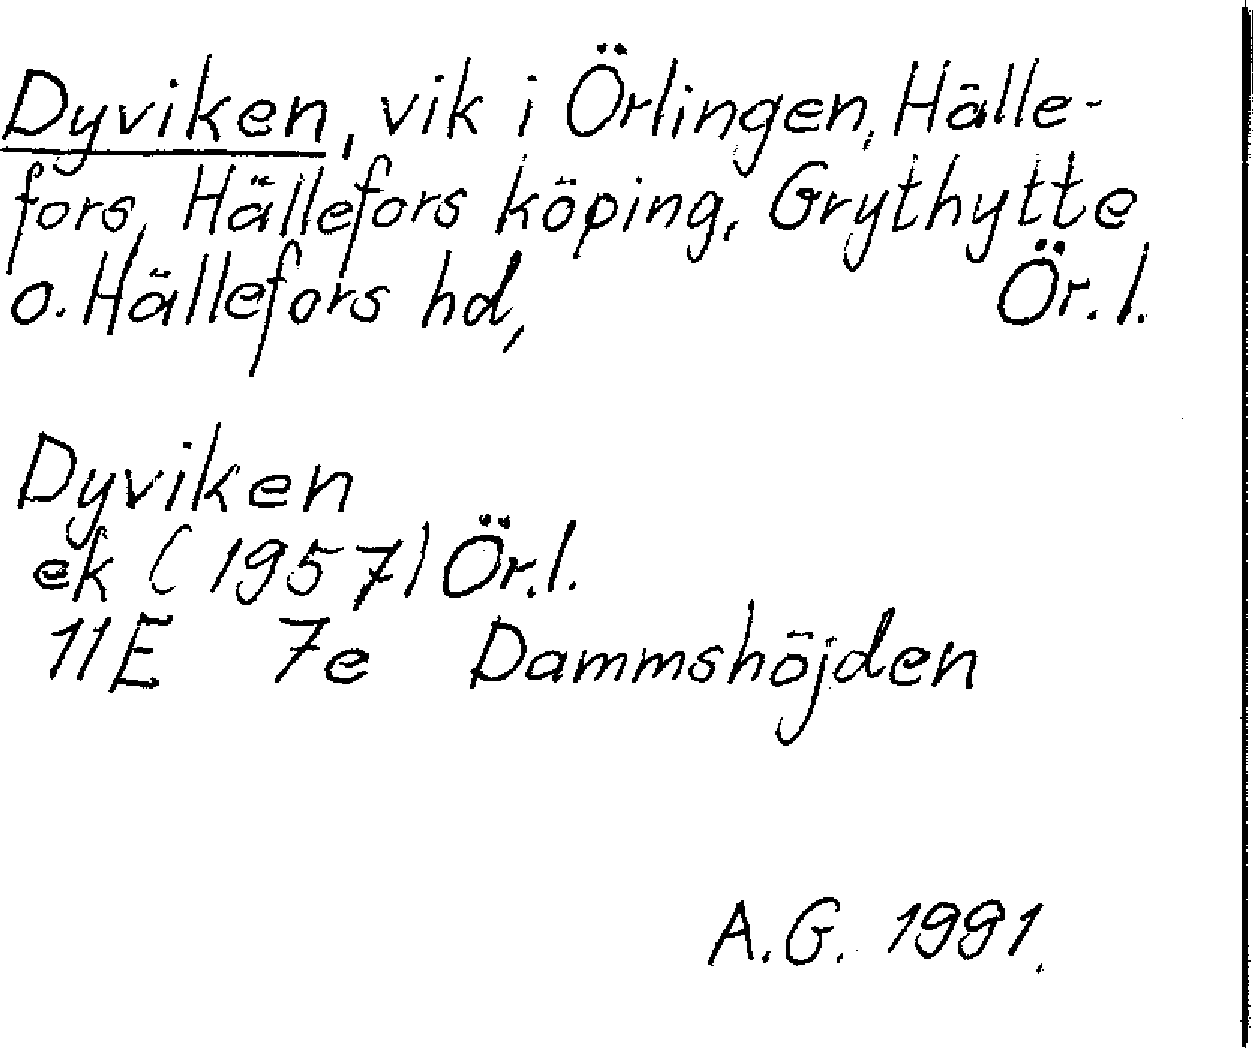 Dyviken, vik i Örlingen, Hälle-
fors, Hällefors köping, Grythytte
o. Hällefors hd, Ör. l.
Dyviken
ek (1957) Ör.l.
11E 7e Dammshöjden
A.G. 1991.